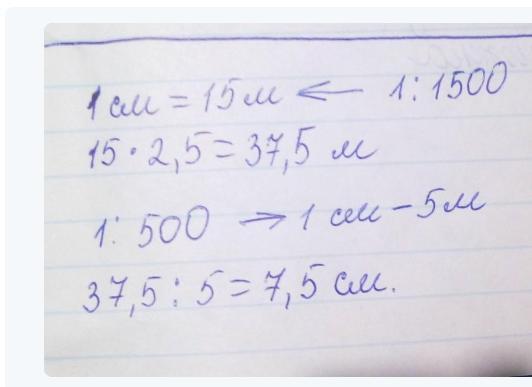 1 см = 15 м ← 1 : 1500
15 · 2,5 = 37,5 м
1 : 500 → 1 см – 5 м
37,5 : 5 = 7,5 см.